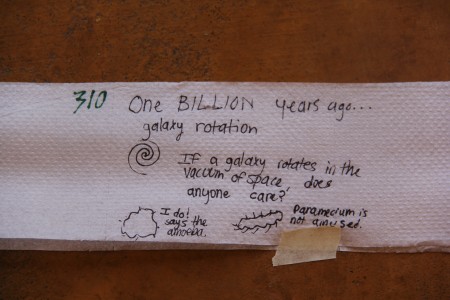 310
One BILLION years ago...
galaxy rotation
If a galaxy rotates in the
vacuum of space, does
anyone care?
I do!
says the
amoeba.
Paramecium is
not amused.